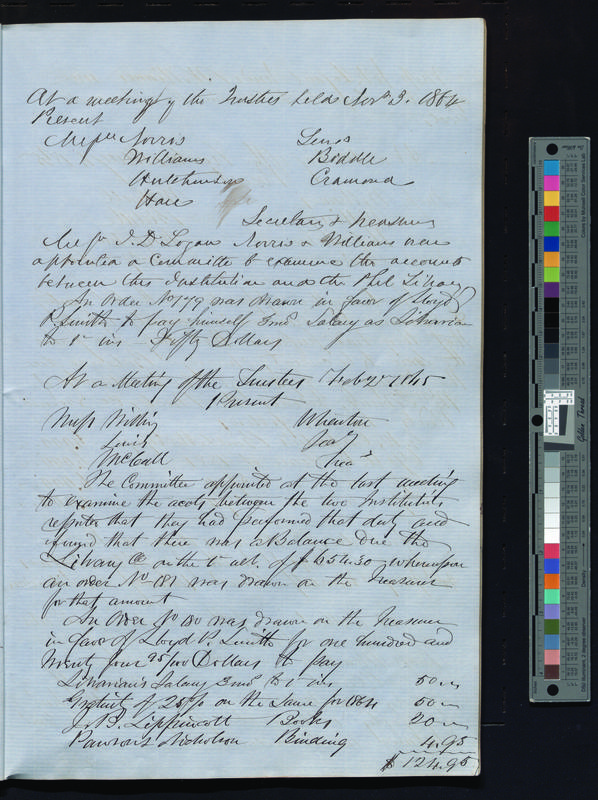 At a meeting of the Trustees held Nov 3. 1864
Present
Messrs Norris Lewis
Williams Biddle
Hutchinson Cramond
Hare
Secretary & Treasurer
Messrs J. D. Logan Norris & Williams were
appointed a Committee to examine the accounts
between this Institution and the Phil Library
An Order No 179 was drawn in favor of Lloyd
P. Smith to pay himself 3 mos Salary as Librarian
to 1st ins Fifty Dollars
At a Meeting of the Trustees Feb 2 1865
Present
Messrs Wharton
Lewis Secy
McCall Treas
The Committee appointed at the last meeting
to examine the accts between the two Institutions
reported that they had performed that duty and
found that there was a Balance due the
Library Co on the 1 ult. of $ 654.30 whereupon
an order No 181 was drawn on the Treasurer
for that amount
An Order No 180 was drawn on the Treasurer
in favor of Lloyd P. Smith for one hundred and
twenty four 95/100 Dollars to pay
Librarian's Salary 3 mos to 1st ins 50
Gratuity of 25 % on the Same for 1864 50
J. B. Lippincott Books 20
Pawson & Nicholson Binding 4.95
$ 124.95